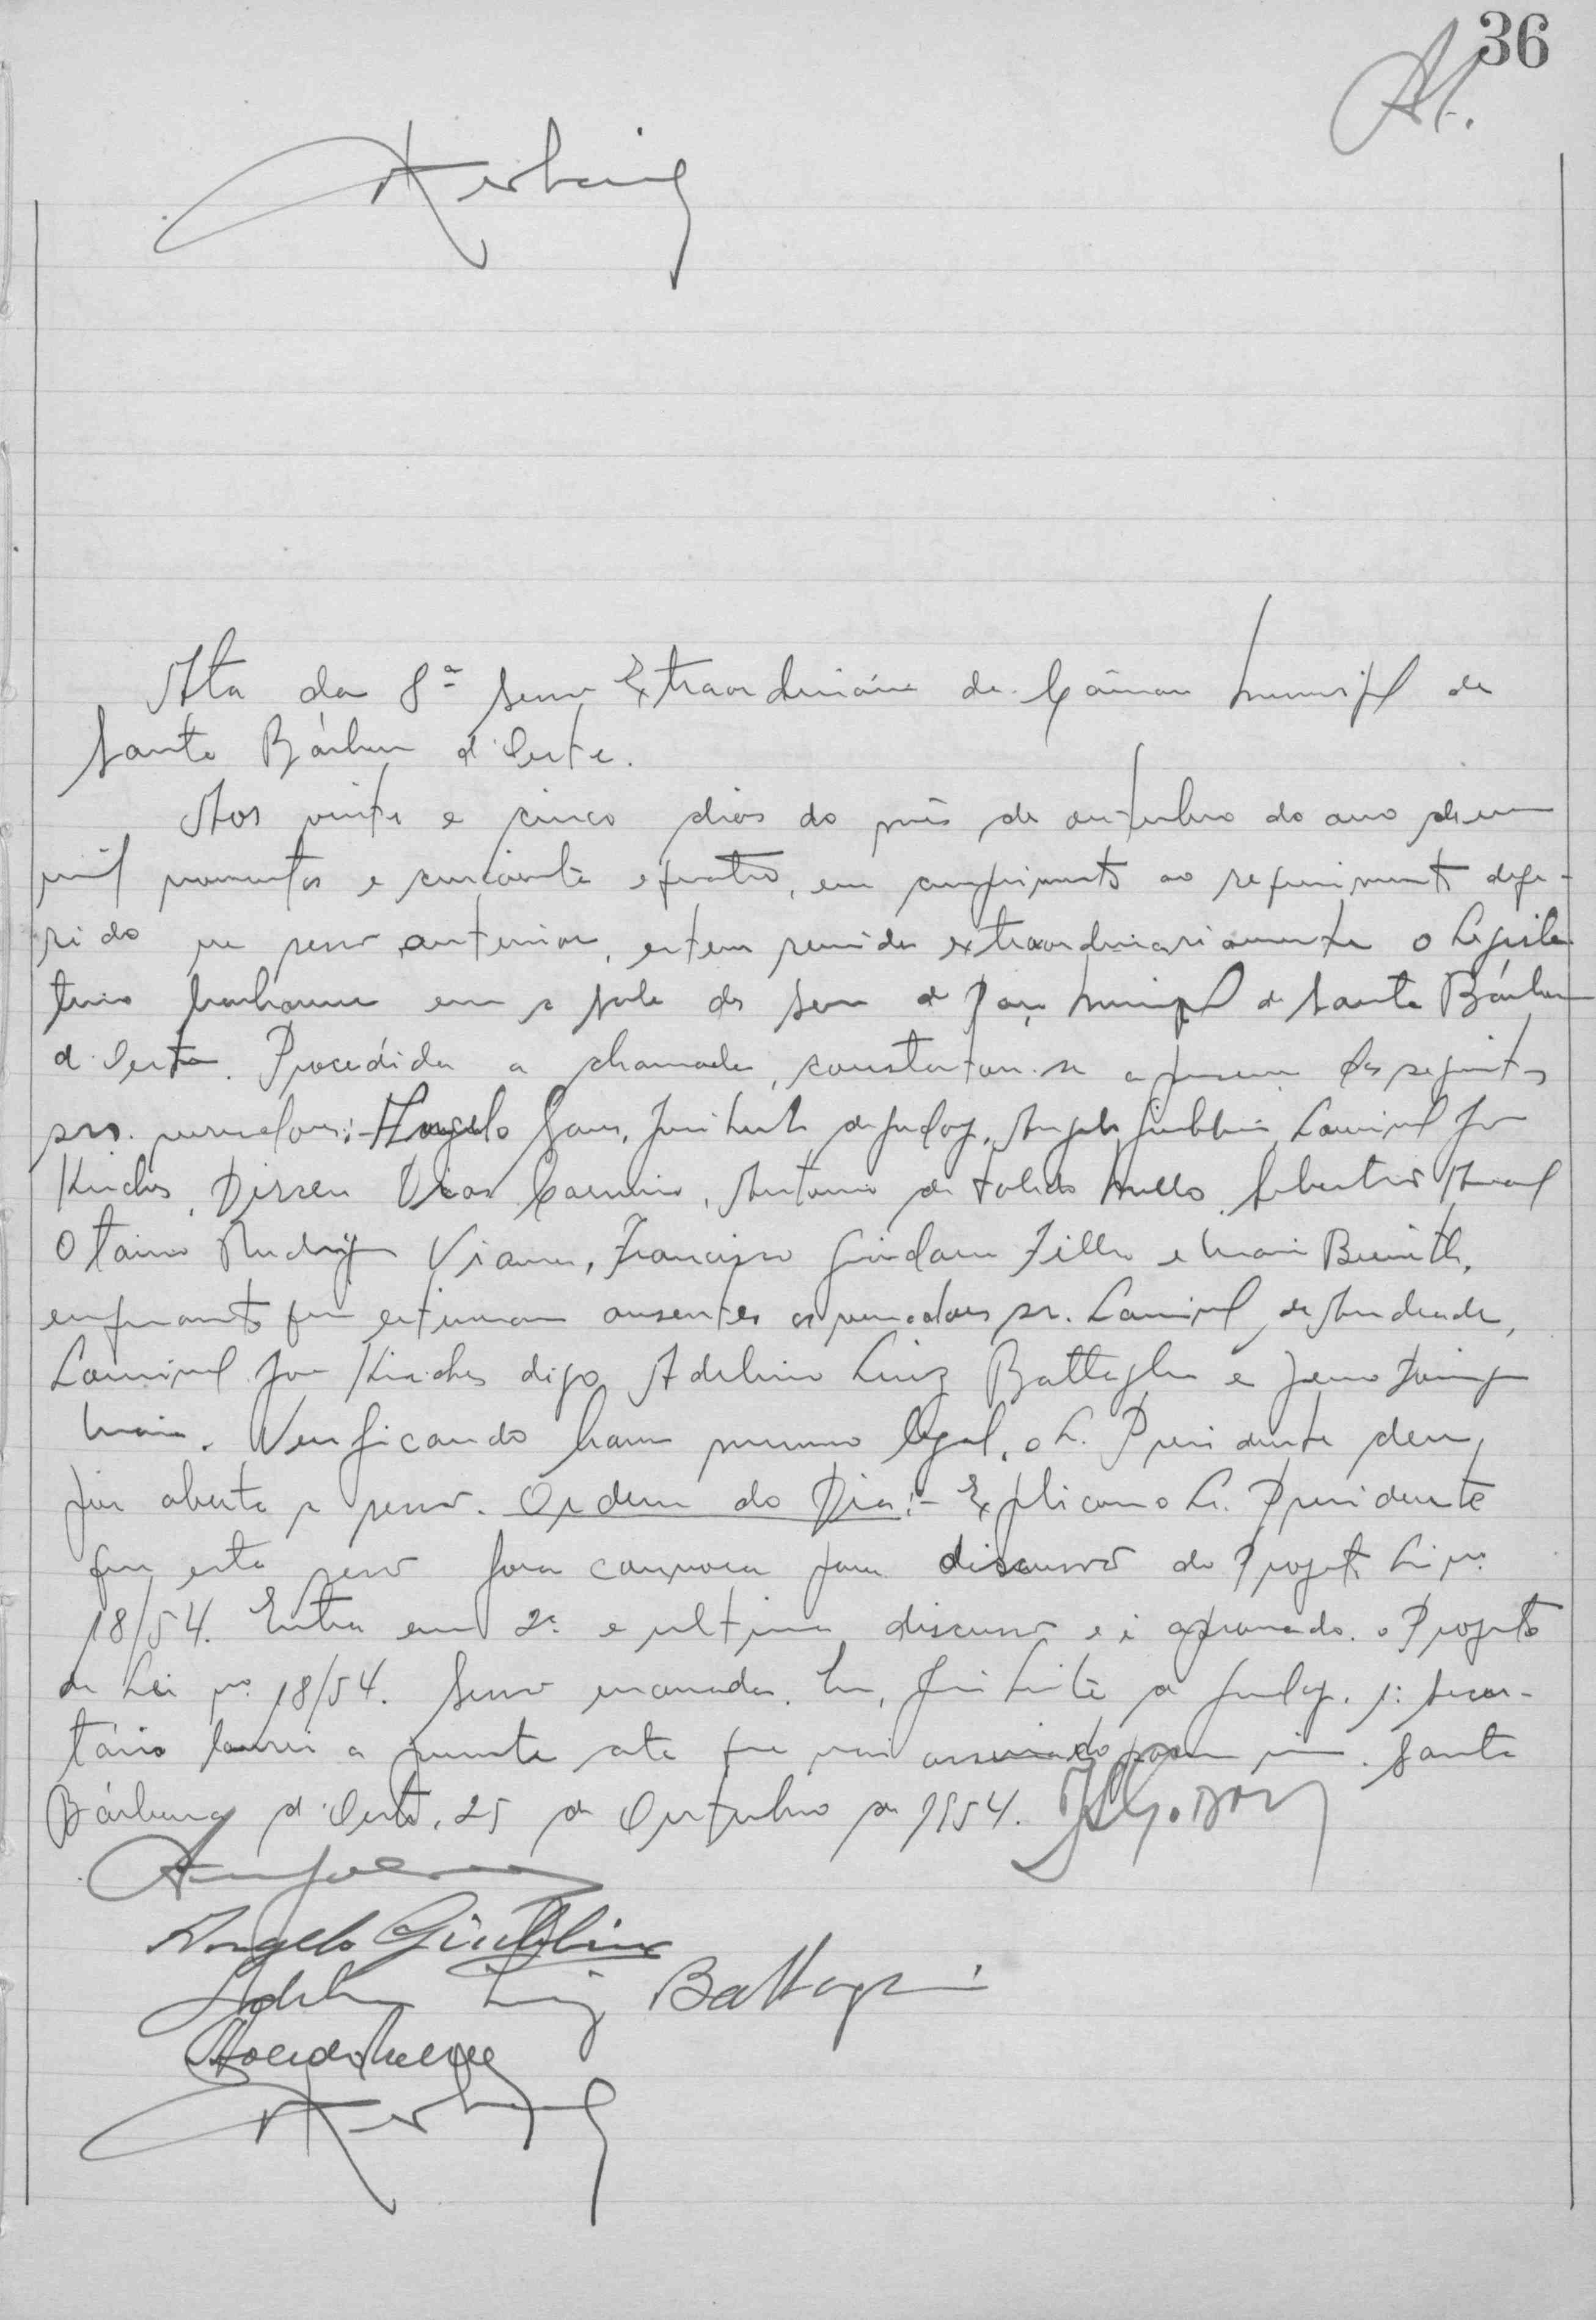 36
Ata da 8ª Sessão Extraordinária da Câmara Municipal de
Santa Bárbara d'Oeste.
Aos vinte e cinco dias do mês de outubro do ano de um
mil novecentos e cincoenta e quatro, em cumprimento ao requerimento defe-
rido na sessão anterior, esteve reunida extraordinariamente o Legisla-
tivo barbarense em a sala das Sessões do Paço Municipal de Santa Bárbara
d'Oeste. Procedida a chamada, constatou-se a presença dos seguintes
srs. vereadores:- Angelo Sans, José Leite de Godoy, Angelo Giubbina, Lourival José
Kirches, Dirceu Dias Carneiro, Antonio de Toledo Mello, Sebastião
Otavio Rodrigues Viana, Francisco Filho e
enquanto que estiveram ausentes os vereadores sr. Lourival de Andrade,
Lourival José Kirches digo Adelino Luiz Battaglia e
Verificando haver numero legal, o Sr. Presidente deu
por aberta a sessão. Ordem do Dia:- Explicou o Sr. Presidente
que esta sessão fora convocada para discussão do Projeto Lei nº
18/54. Entra em 2ª e ultima discussão e é aprovado o Projeto
de Lei nº 18/54. Sessão encerrada. Eu, José Leite de Godoy, 1º Secre-
tário lavrei a presente ata que vai assinada por mim. Santa
Bárbara d'Oeste, 25 de Outubro de 1954. JLGodoy
Angelo Giubbina
Adelino Luiz Battaglia